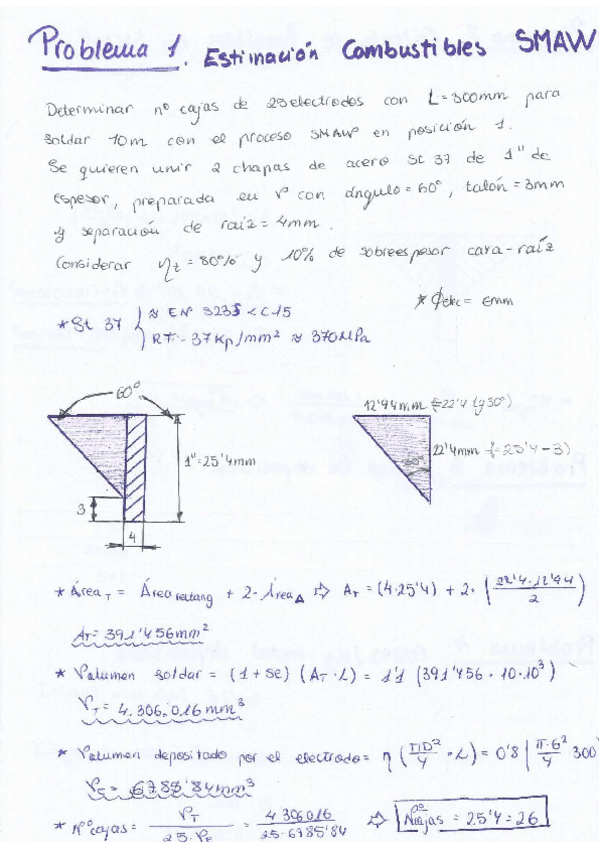 Problema 1. Estimación Combustibles SMAW
Determinar nº cajas de 25 electrodos con L = 300mm para
soldar 10m con el proceso SMAW en posición 1.
Se quieren unir 2 chapas de acero St 37 de 1" de
espesor, preparada en V con ángulo = 60°, talón = 3mm
y separación de raíz = 4mm.
Considerar ηt = 80% y 10% de sobreespesor cara-raíz
* Φelec = 6mm
* St 37 { ≈ EN S235 < C15
RT = 37Kp/mm² ≈ 370MPa
60°
12'94mm (=22'4 tg30°)
1"=25'4mm
22'4mm (=25'4-3)
30°
3
4
* ÁreaT = Área rectang + 2· ÁreaΔ ⇨ AT = (4·25'4) + 2· (22'4·12'94 / 2)
AT = 391'456mm²
* Volumen soldar = (1+Se) (AT·L) = 1'1 (391'456 · 10·10³)
VT = 4.306.016 mm³
* Volumen depositado por el electrodo = η (ΠD²/4 · L) = 0'8 (π·6²/4 300
VE = 6785'84mm³
* Nº cajas = VT / 25·VE = 4306016 / 25·6785'84 ⇨ Nº cajas = 25'4 = 26